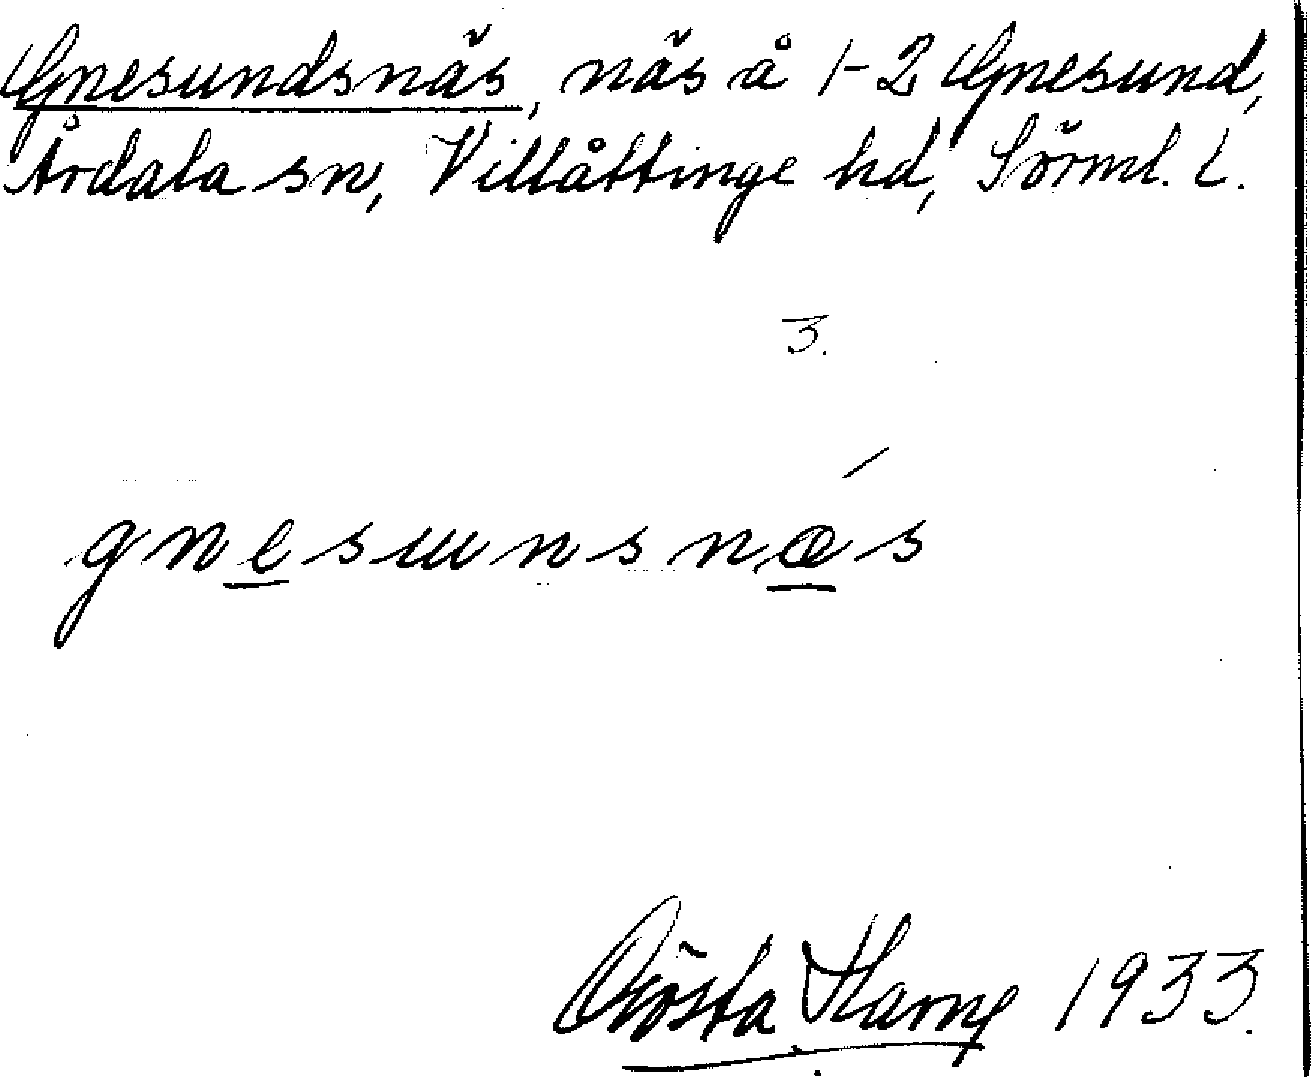 Gnesundsnäs, näs å 1-2 Gnesund,
Årdala sn, Villåttinge hd, Sörml. L.
3.
gnesunsnæs
Gösta 1933.